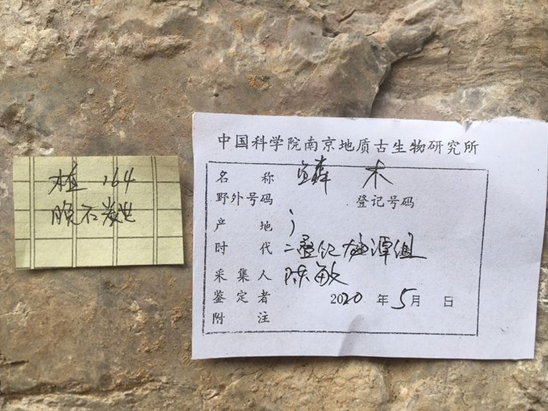 植 164
晚石炭世
中国科学院南京地质古生物研究所
名 称 鳞 木
野外号码 登记号码
产 地
时 代 二叠纪龙潭组
采 集 人 陈敏
鉴 定 者 2020 年 5 月 日
附 注